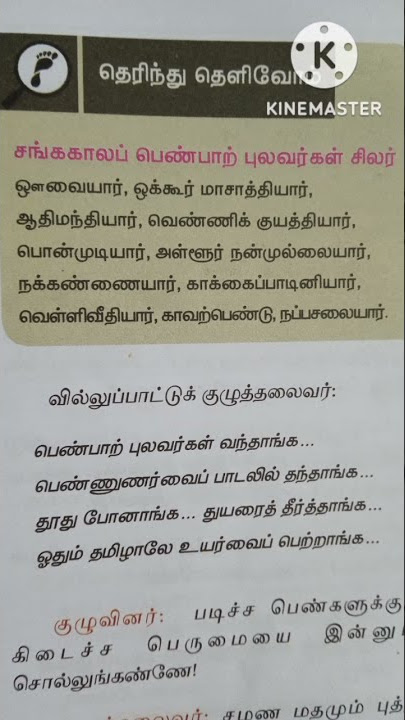 தெரிந்து தெளிவோம்
K
KINEMASTER
சங்ககாலப் பெண்பாற் புலவர்கள் சிலர்
ஔவையார், ஒக்கூர் மாசாத்தியார்,
ஆதிமந்தியார், வெண்ணிக் குயத்தியார்,
பொன்முடியார், அள்ளூர் நன்முல்லையார்,
நக்கண்ணையார், காக்கைப்பாடினியார்,
வெள்ளிவீதியார், காவற்பெண்டு, நப்பசலையார்.
வில்லுப்பாட்டுக் குழுத்தலைவர்:
பெண்பாற் புலவர்கள் வந்தாங்க...
பெண்ணுணர்வைப் பாடலில் தந்தாங்க...
தூது போனாங்க... துயரைத் தீர்த்தாங்க...
ஓதும் தமிழாலே உயர்வைப் பெற்றாங்க...
குழுவினர்: படிச்ச பெண்களுக்கு
கிடைச்ச பெருமையை
சொல்லுங்கண்ணே!
சமண மதமும்